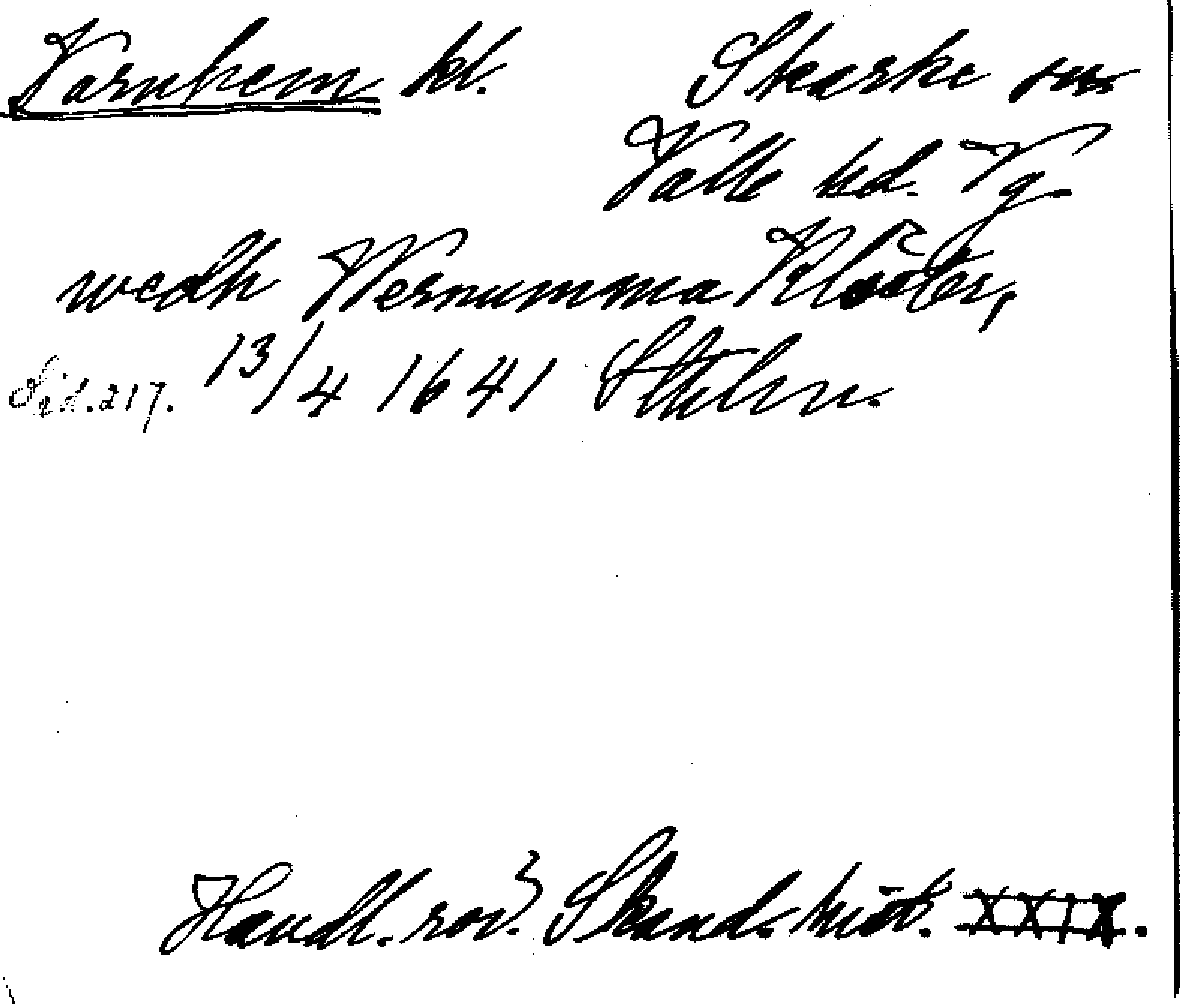 Varnhem kl. Skarke sn
Valle hd. Vg.
wedh Wernumma Klöster,
Sid. 217. 13/4 1641 Sthlm.
Handl. rör. Skand. hist. XXIX.